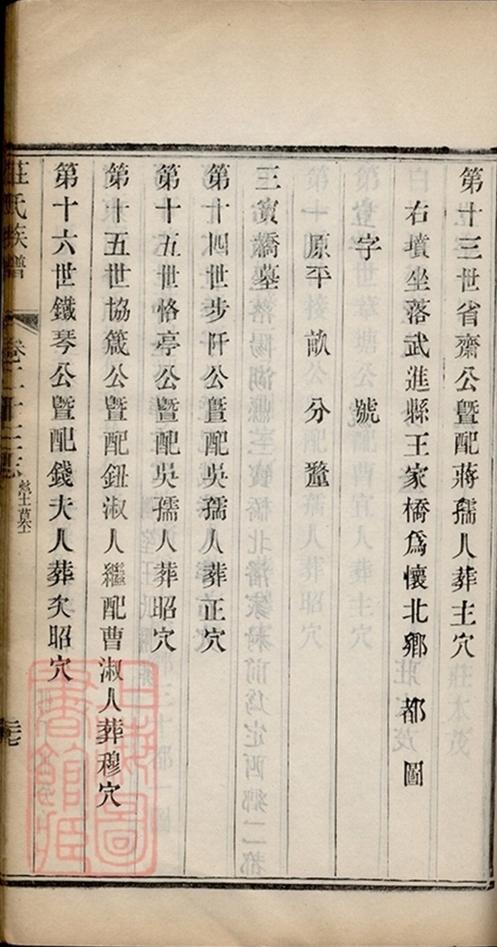 第十三世省齋公暨配蔣孺人葬主穴
右墳坐落武進縣王家橋爲懷北鄉　都　圖
字　　號
原平　畝　分　釐
三寶橋墓
第十四世步阡公暨配吳孺人葬正穴
第十五世恪亭公暨配吳孺人葬昭穴
第十五世協箴公暨配鈕淑人繼配曹淑人葬穆穴
第十六世鐵琴公暨配錢夫人葬次昭穴
莊氏族譜
卷二十
塋墓